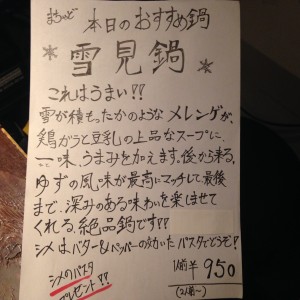 本日のおすすめ鍋
* 雪見鍋 *
これはうまい!!
雪が積もったかのような メレンゲが、
鶏がらと豆乳の上品なスープに、
一味、うまみを加えます。後から来る、
ゆずの風味が最高にマッチして最後
まで、深みのある味わいを楽しませて
くれる、絶品鍋です!!
シメはバター&ペッパーの効いた パスタでどうぞ!
シメのパスタ
プレゼント!!
1人前 ¥950
(2人前〜)